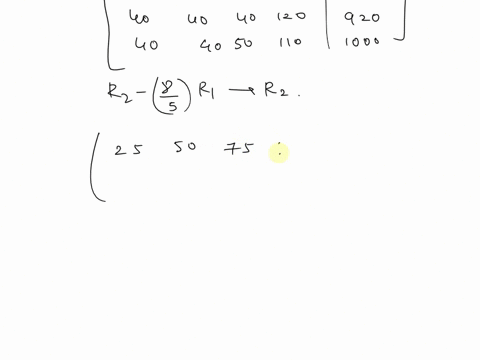 40 40 40 120 | 920
40 40 50 110 | 1000
R₂ - (8/5) R₁ → R₂ .
25 50 75